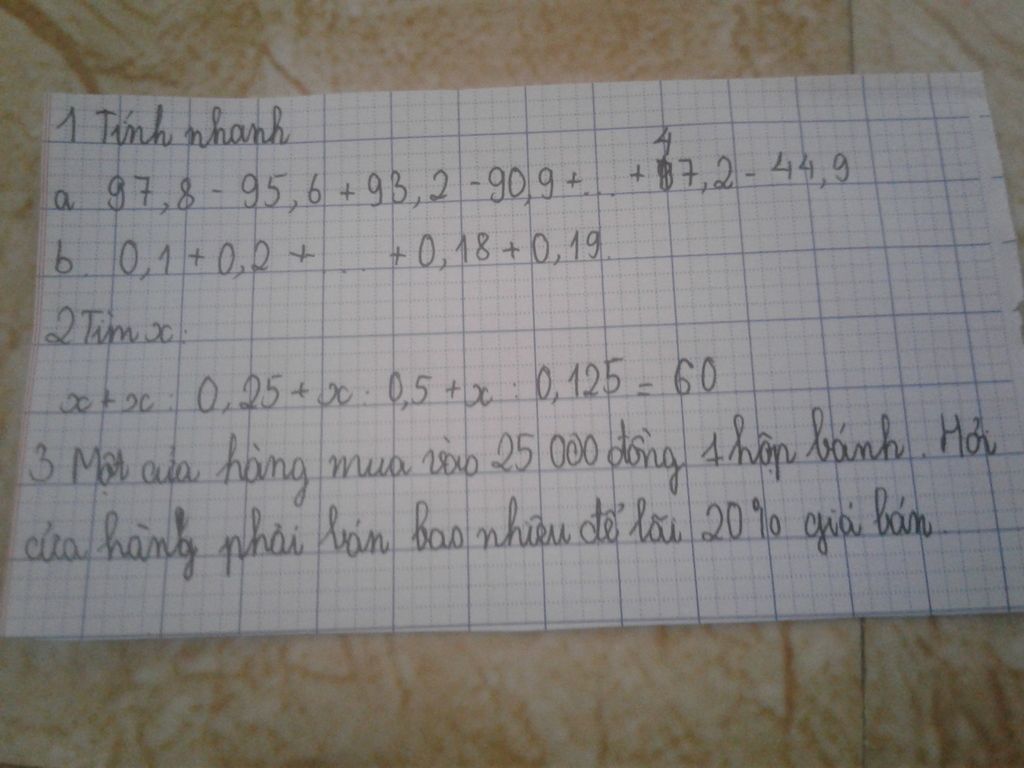 1 Tính nhanh
a 97,8 - 95,6 + 93,2 - 90,9 + ... + 47,2 - 44,9
b. 0,1 + 0,2 + .... + 0,18 + 0,19.
2 Tìm x:
x + x : 0,25 + x : 0,5 + x : 0,125 = 60
3 Một cửa hàng mua vào 25 000 đồng 1 hộp bánh. Hỏi
cửa hàng phải bán bao nhiêu để lãi 20% giá bán.